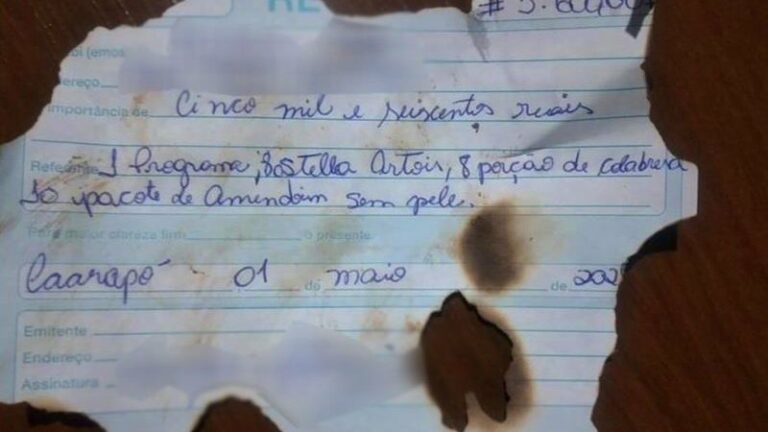 RE
# 5.600,00
bi (emos
dereço
importância de Cinco mil e seiscentos reais
Referente 1 Programa, 80 Stella Artois, 8 porção de calabresa
10 pacote de Amendoim sem pele.
Para maior clareza firm o presente
Caarapó 01 de maio de 202
Emitente
Endereço
Assinatura